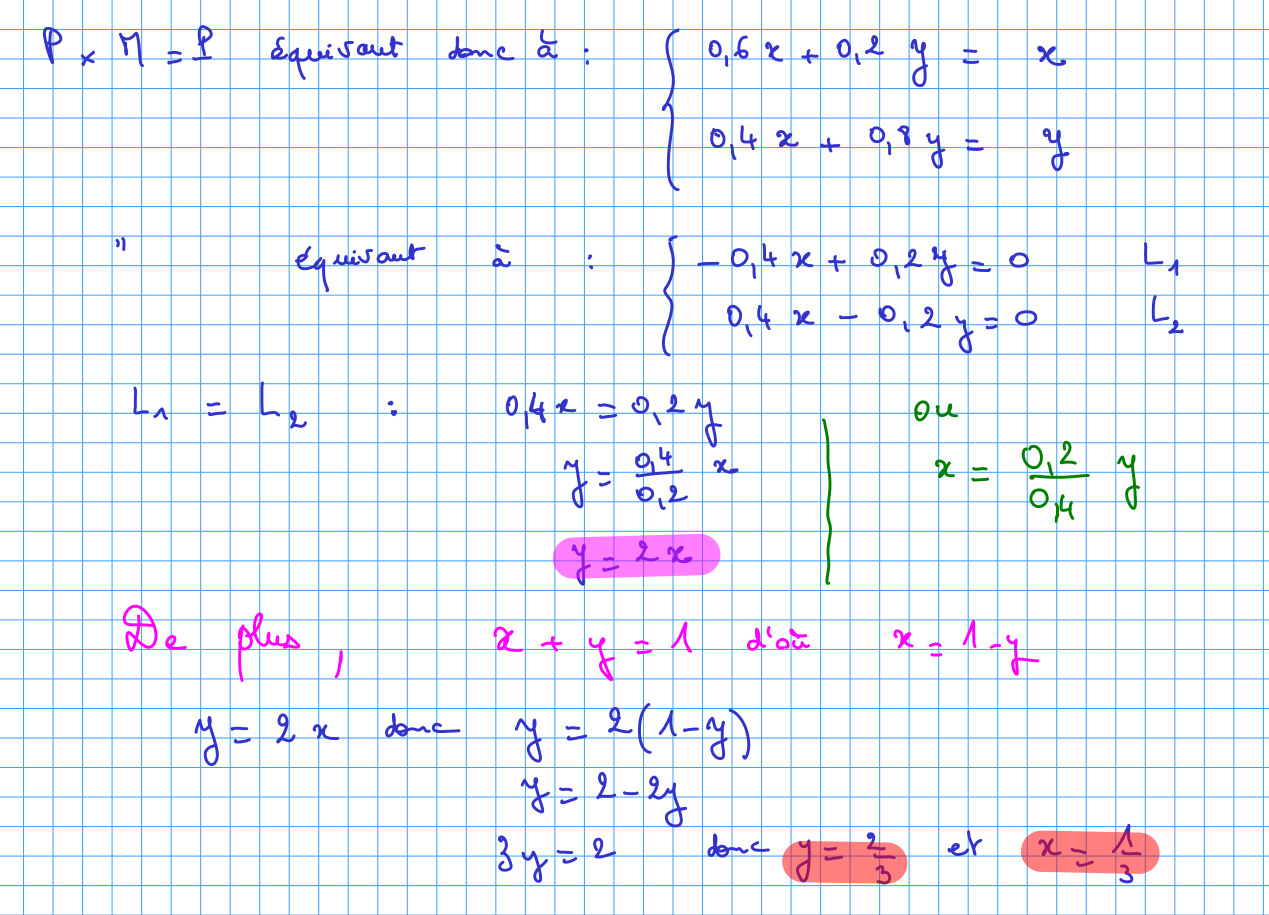 P × M = P équivaut donc à : { 0,6 x + 0,2 y = x
0,4 x + 0,8 y = y
" équivaut à : { - 0,4 x + 0,2 y = 0 L₁
0,4 x - 0,2 y = 0 L₂
L₁ = L₂ : 0,4 x = 0,2 y ou
y = 0,4/0,2 x x = 0,2/0,4 y
y = 2 x
De plus, x + y = 1 d'où x = 1 - y
y = 2 x donc y = 2(1 - y)
y = 2 - 2y
3 y = 2 donc y = 2/3 et x = 1/3